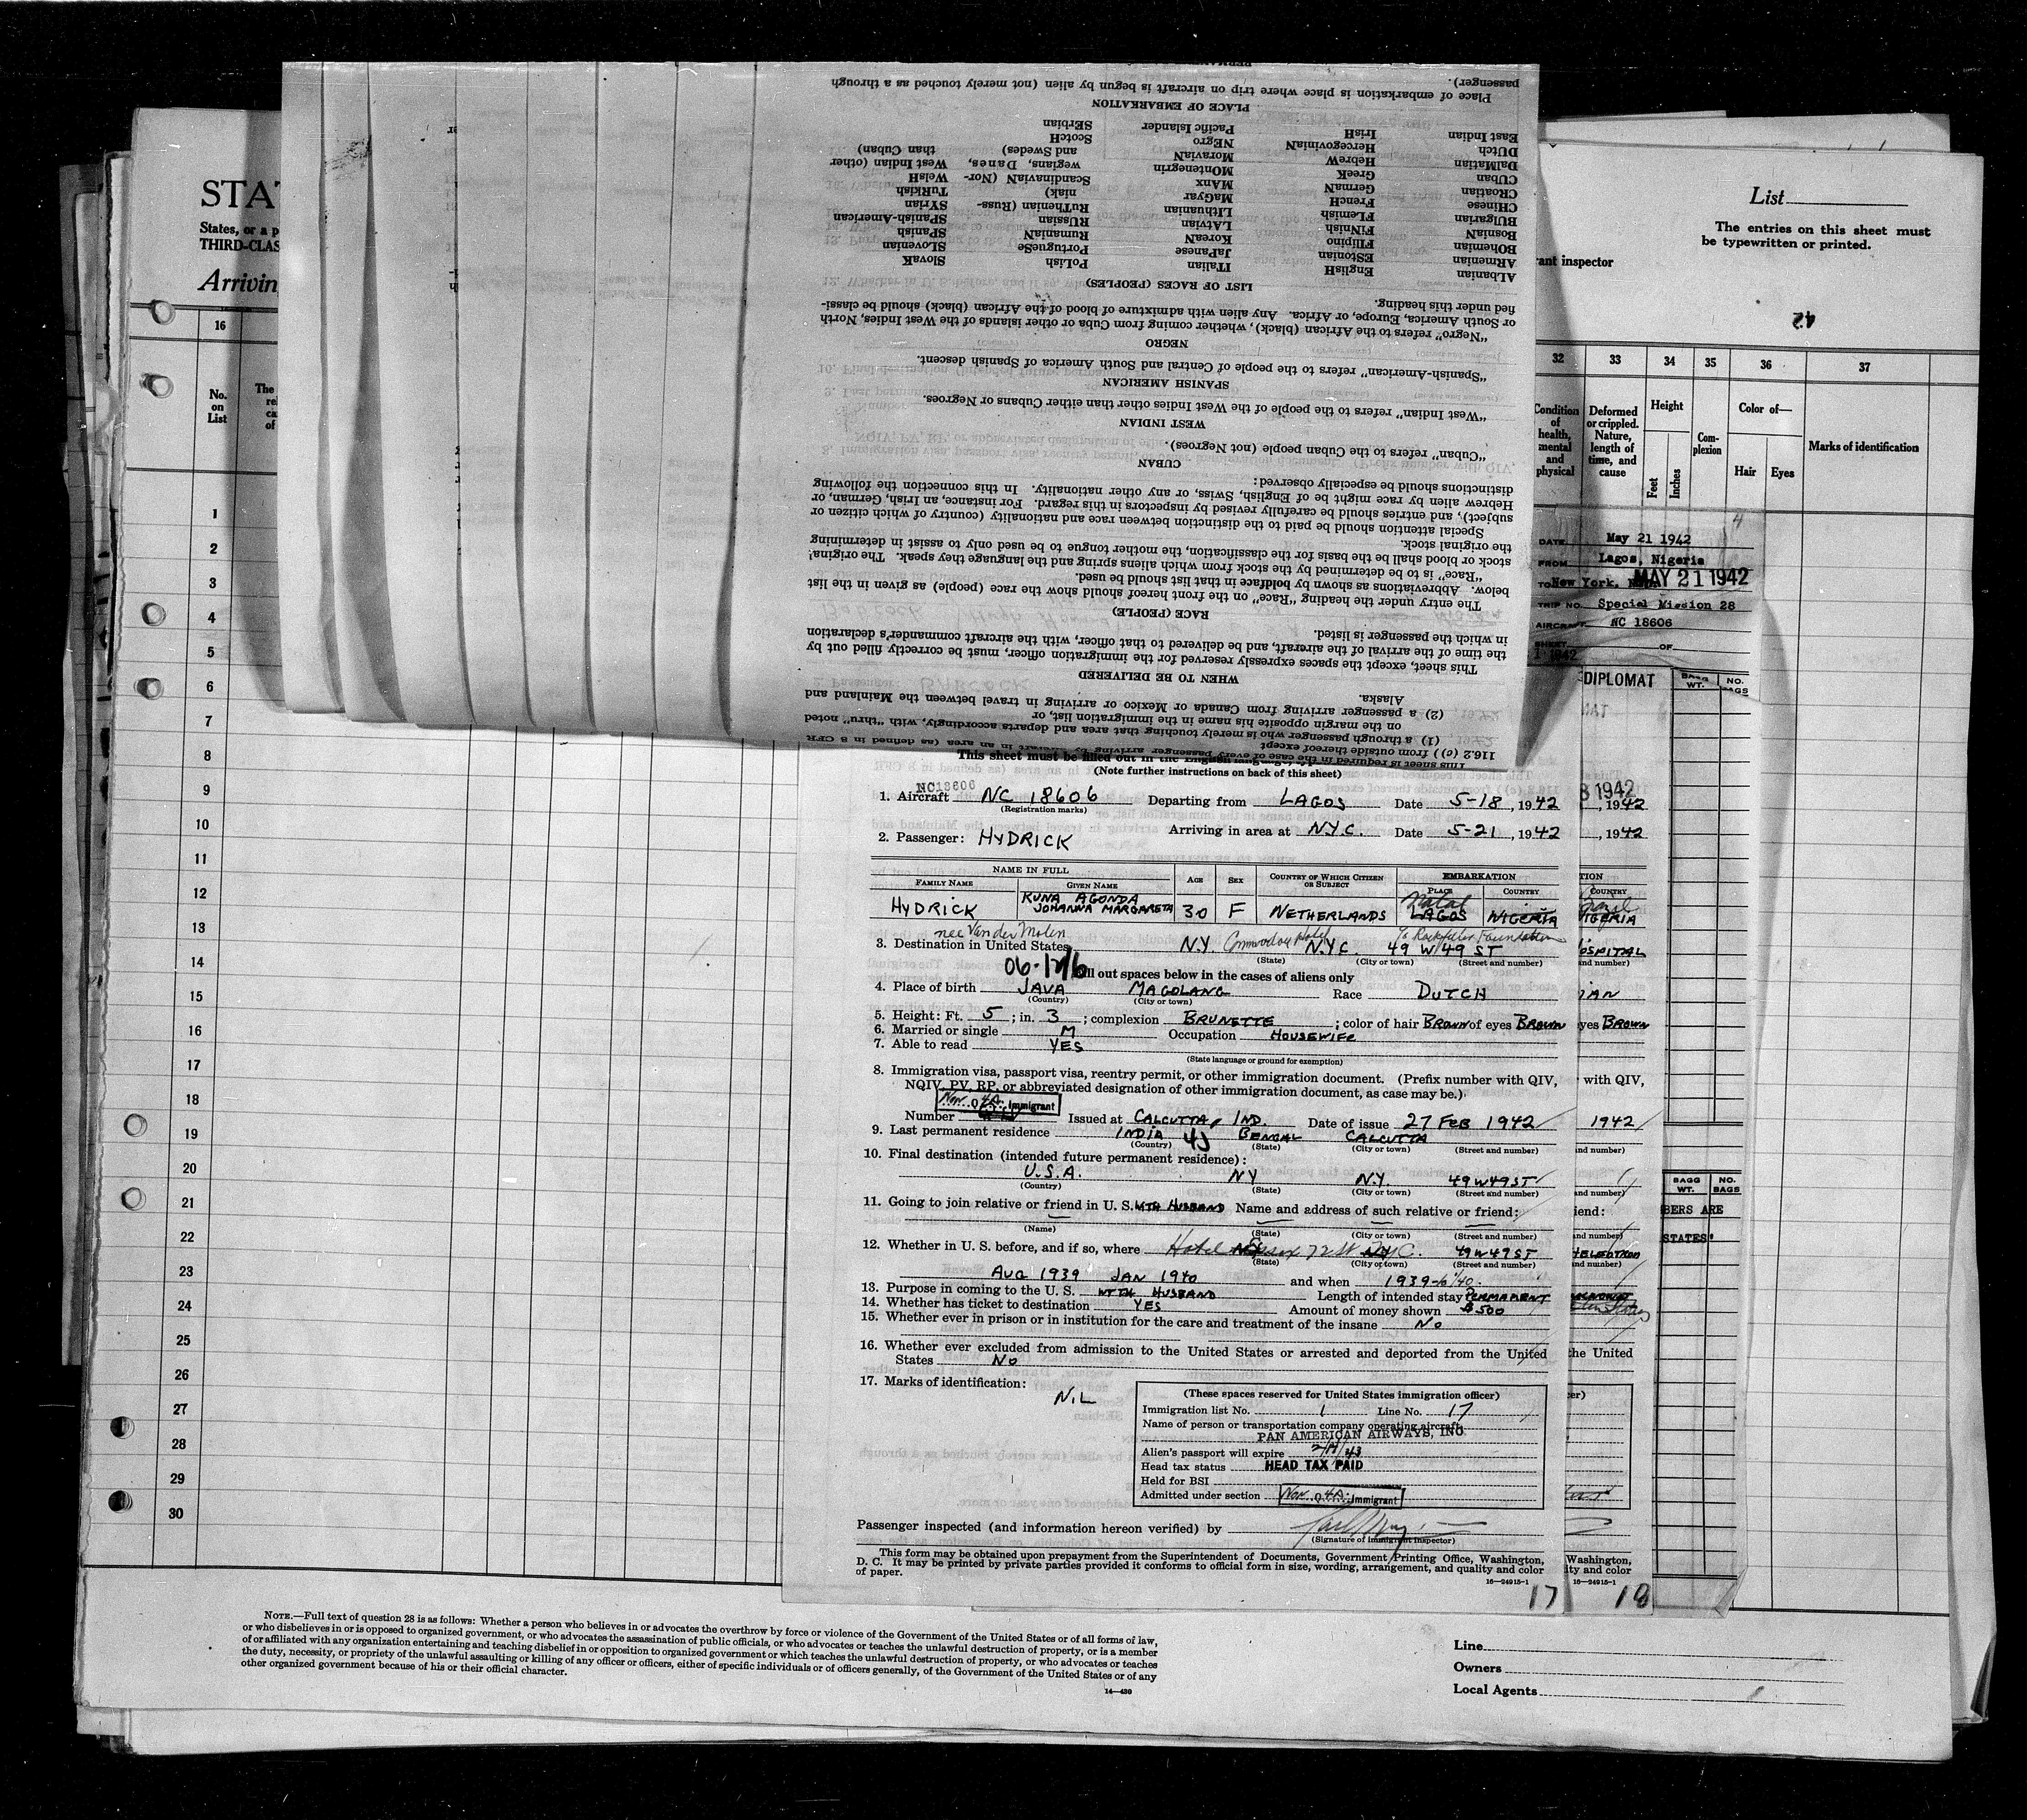 STA
States, or a p
THIRD-CLAS
Arrivin
16
No.
on
List
The
re
ca
of
1
2
3
4
5
6
7
8
9
10
11
12
13
14
15
16
17
18
19
20
21
22
23
24
25
26
27
28
29
30
This sheet is required in the case of every passenger arriving by aircraft in an area (as defined in 8 CFR
116.2 (c)) from outside thereof except
(1) a through passenger who is merely touching that area and departs accordingly, with "thru" noted
on the margin opposite his name in the immigration list, or
(2) a passenger arriving from Canada or Mexico or arriving in travel between the Mainland and
Alaska.
WHEN TO BE DELIVERED
This sheet, except the spaces expressly reserved for the immigration officer, must be correctly filled out by
the time of the arrival of the aircraft, and be delivered to that officer, with the aircraft commander's declaration
in which the passenger is listed.
RACE (PEOPLE)
The entry under the heading "Race" on the front hereof should show the race (people) as given in the list
below. Abbreviations as shown by boldface in that list should be used.
"Race" is to be determined by the stock from which aliens spring and the language they speak. The original
stock or blood shall be the basis for the classification, the mother tongue to be used only to assist in determining
the original stock.
Special attention should be paid to the distinction between race and nationality (country of which citizen or
subject), and entries should be carefully revised by inspectors in this regard. For instance, an Irish, German, or
Hebrew alien by race might be of English, Swiss, or any other nationality. In this connection the following
distinctions should be especially observed:
CUBAN
"Cuban" refers to the Cuban people (not Negroes).
WEST INDIAN
"West Indian" refers to the people of the West Indies other than either Cubans or Negroes.
SPANISH AMERICAN
"Spanish-American" refers to the people of Central and South America of Spanish descent.
NEGRO
"Negro" refers to the African (black), whether coming from Cuba or other islands of the West Indies, North
or South America, Europe, or Africa. Any alien with admixture of blood of the African (black) should be classi-
fied under this heading.
LIST OF RACES (PEOPLES)
Albanian EnglisH ITalian PoLish SlovaK
ARmenian EStonian JaPanese PortugueSe SLOvenian
BOhemian FIlipino KoreaN RumaniaN SPanish
BosniaN FiNNish LAtvian RUssian SPanish-American
BUlgarian FLemish LIthuanian RuThenian (Russ- SYrian
CHinese FrencH MaGyar niak) TuRKish
CRoatian GermaN MAnx ScandinaviaN (Nor- WelsH
CUban GreeK MOntenegrin wegians, Danes, West Indian (other
DalMatian HebreW MoraviaN and Swedes) than Cuban)
DUtch HercegoviniaN NEgro ScotcH
East Indian IrisH Pacific Islander SErbian
PLACE OF EMBARKATION
Place of embarkation is place where trip on aircraft is begun by alien (not merely touched as a through
passenger).
This sheet must be filled out in
(Note further instructions on back of this sheet)
NC18606
1. Aircraft NC 18606 Departing from LAGOS Date 5-18, 1942
(Registration marks)
2. Passenger: HYDRICK Arriving in area at N.Y.C. Date 5-21, 1942
NAME IN FULL
FAMILY NAME GIVEN NAME AGE SEX COUNTRY OF WHICH CITIZEN OR SUBJECT EMBARKATION
PLACE COUNTRY
Natal
HYDRICK RUNA AGONDA JOHANNA MARGARETA 30 F NETHERLANDS LAGOS NIGERIA
nee Van der Molen
3. Destination in United States N.Y. Commodore Hotel N.Y.C. % Rockfeller Foundation 49 W 49 ST
(State) (City or town) (Street and number)
Fill out spaces below in the cases of aliens only
4. Place of birth JAVA MAGOLANG Race DUTCH
(Country) (City or town)
5. Height: Ft. 5; in. 3; complexion BRUNETTE; color of hair BROWN of eyes BROWN
6. Married or single M Occupation HOUSEWIFE
7. Able to read YES
(State language or ground for exemption)
8. Immigration visa, passport visa, reentry permit, or other immigration document. (Prefix number with QIV,
NQIV, PV, RP, or abbreviated designation of other immigration document, as case may be.)
Non 4A Immigrant
Number Issued at CALCUTTA, IND. Date of issue 27 FEB 1942
9. Last permanent residence INDIA BENGAL CALCUTTA
(Country) (State) (City or town) (Street and number)
10. Final destination (intended future permanent residence):
U.S.A. NY N.Y. 49W49ST
(Country) (State) (City or town) (Street and number)
11. Going to join relative or friend in U. S. WITH HUSBAND Name and address of such relative or friend:
(Name) (State) (City or town) (Street and number)
12. Whether in U. S. before, and if so, where Hotel Essex 72 St N.Y.C. 49W49ST
(State) (City or town) (Street and number)
AUG 1939 JAN 1940 and when 1939-to 1/40.
13. Purpose in coming to the U. S. WITH HUSBAND Length of intended stay PERMANENT
14. Whether has ticket to destination YES Amount of money shown $500
15. Whether ever in prison or in institution for the care and treatment of the insane No
16. Whether ever excluded from admission to the United States or arrested and deported from the United
States No
17. Marks of identification:
NIL
(These spaces reserved for United States immigration officer)
Immigration list No. 1 Line No. 17
Name of person or transportation company operating aircraft
PAN AMERICAN AIRWAYS, INC
Alien's passport will expire
Head tax status HEAD TAX PAID
Held for BSI
Admitted under section Non 4A Immigrant
Passenger inspected (and information hereon verified) by
(Signature of immigrant inspector)
This form may be obtained upon prepayment from the Superintendent of Documents, Government Printing Office, Washington,
D. C. It may be printed by private parties provided it conforms to official form in size, wording, arrangement, and quality and color
of paper.
16—24915-1
17
18
List
The entries on this sheet must
be typewritten or printed.
rant inspector
42
32 33 34 35 36 37
Condition of health, mental and physical
Deformed or crippled. Nature, length of time, and cause
Height
Feet Inches
Com-plexion
Color of—
Hair Eyes
Marks of identification
DATE May 21 1942
FROM Lagos, Nigeria
TO New York, MAY 21 1942
TRIP NO. Special Mission 28
AIRCRAFT NC 18606
SHEET OF
DIPLOMAT
BAGG WT. NO. BAGS
8 1942, 1942
, 1942
TION
COUNTRY
Brazil
NIGERIA
OSPITAL
and number)
IAN
yes BROWN
with QIV,
1942
and number)
and number)
iend:
and number)
and number)
the United
cer)
Washington,
ity and color
16—24915-1
BAGG WT. NO. BAGS
BERS ARE
STATES"
NOTE.—Full text of question 28 is as follows: Whether a person who believes in or advocates the overthrow by force or violence of the Government of the United States or of all forms of law,
or who disbelieves in or is opposed to organized government, or who advocates the assassination of public officials, or who advocates or teaches the unlawful destruction of property, or is a member
of or affiliated with any organization entertaining and teaching disbelief in or opposition to organized government or which teaches the unlawful destruction of property, or who advocates or teaches
the duty, necessity, or propriety of the unlawful assaulting or killing of any officer or officers, either of specific individuals or of officers generally, of the Government of the United States or of any
other organized government because of his or their official character.
14—430
Line
Owners
Local Agents